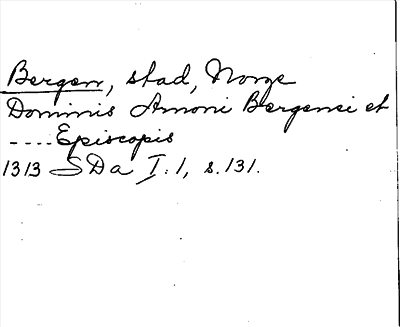 Bergen, stad, Norge
Dominis Arnoni Bergensi et
.... Episcopis
1313 SDa I.1, s.131.